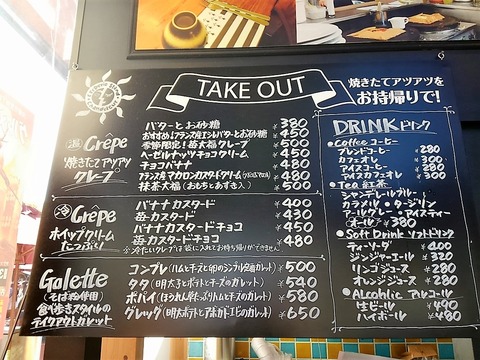 TAKE OUT
焼きたてアツアツを
お持帰りで!
温 Crêpe
焼きたてアツアツ
クレープ
バターとお砂糖 ¥380
おすすめ!フランス産エシレバターとお砂糖 ¥450
季節限定!苺大福クレープ ¥500
ヘーゼルナッツチョコクリーム ¥450
チョコバナナ ¥480
フランス産マカロンカスタードクリーム ¥480
抹茶大福(おもちとあずき入) ¥500
冷 Crêpe
ホイップクリーム
たっぷり!
バナナカスタード ¥400
苺カスタード ¥430
バナナカスタードチョコ ¥450
苺カスタードチョコ ¥480
※冷たいクレープは袋に入れてお持ち帰りができません
Galette
(そば粉使用)
食べ歩きスタイルの
テイクアウトガレット
コンプレ(ハムとチーズと卵のシンプル定番ガレット) ¥500
タタ(明太子とポテトとチーズのガレット) ¥540
ポパイ(ほうれん草たっぷりハムとチーズのガレット) ¥580
グレッグ(明太ポテトとアボカドエビのガレット) ¥650
DRINK ドリンク
Coffee コーヒー
ブレンドコーヒー 280
カフェオレ 300
アイスコーヒー ¥280
アイスカフェオレ ¥300
Tea 紅茶
シャンデレールブルー
カラメル・ダージリン
アールグレー・アイスティー
(オール) ¥380
Soft Drink ソフトドリンク
ティーソーダ ¥400
ジンジャーエール ¥320
リンゴジュース ¥280
オレンジジュース ¥280
Alcohlic アルコール
生ビール ¥490
ハイボール ¥480